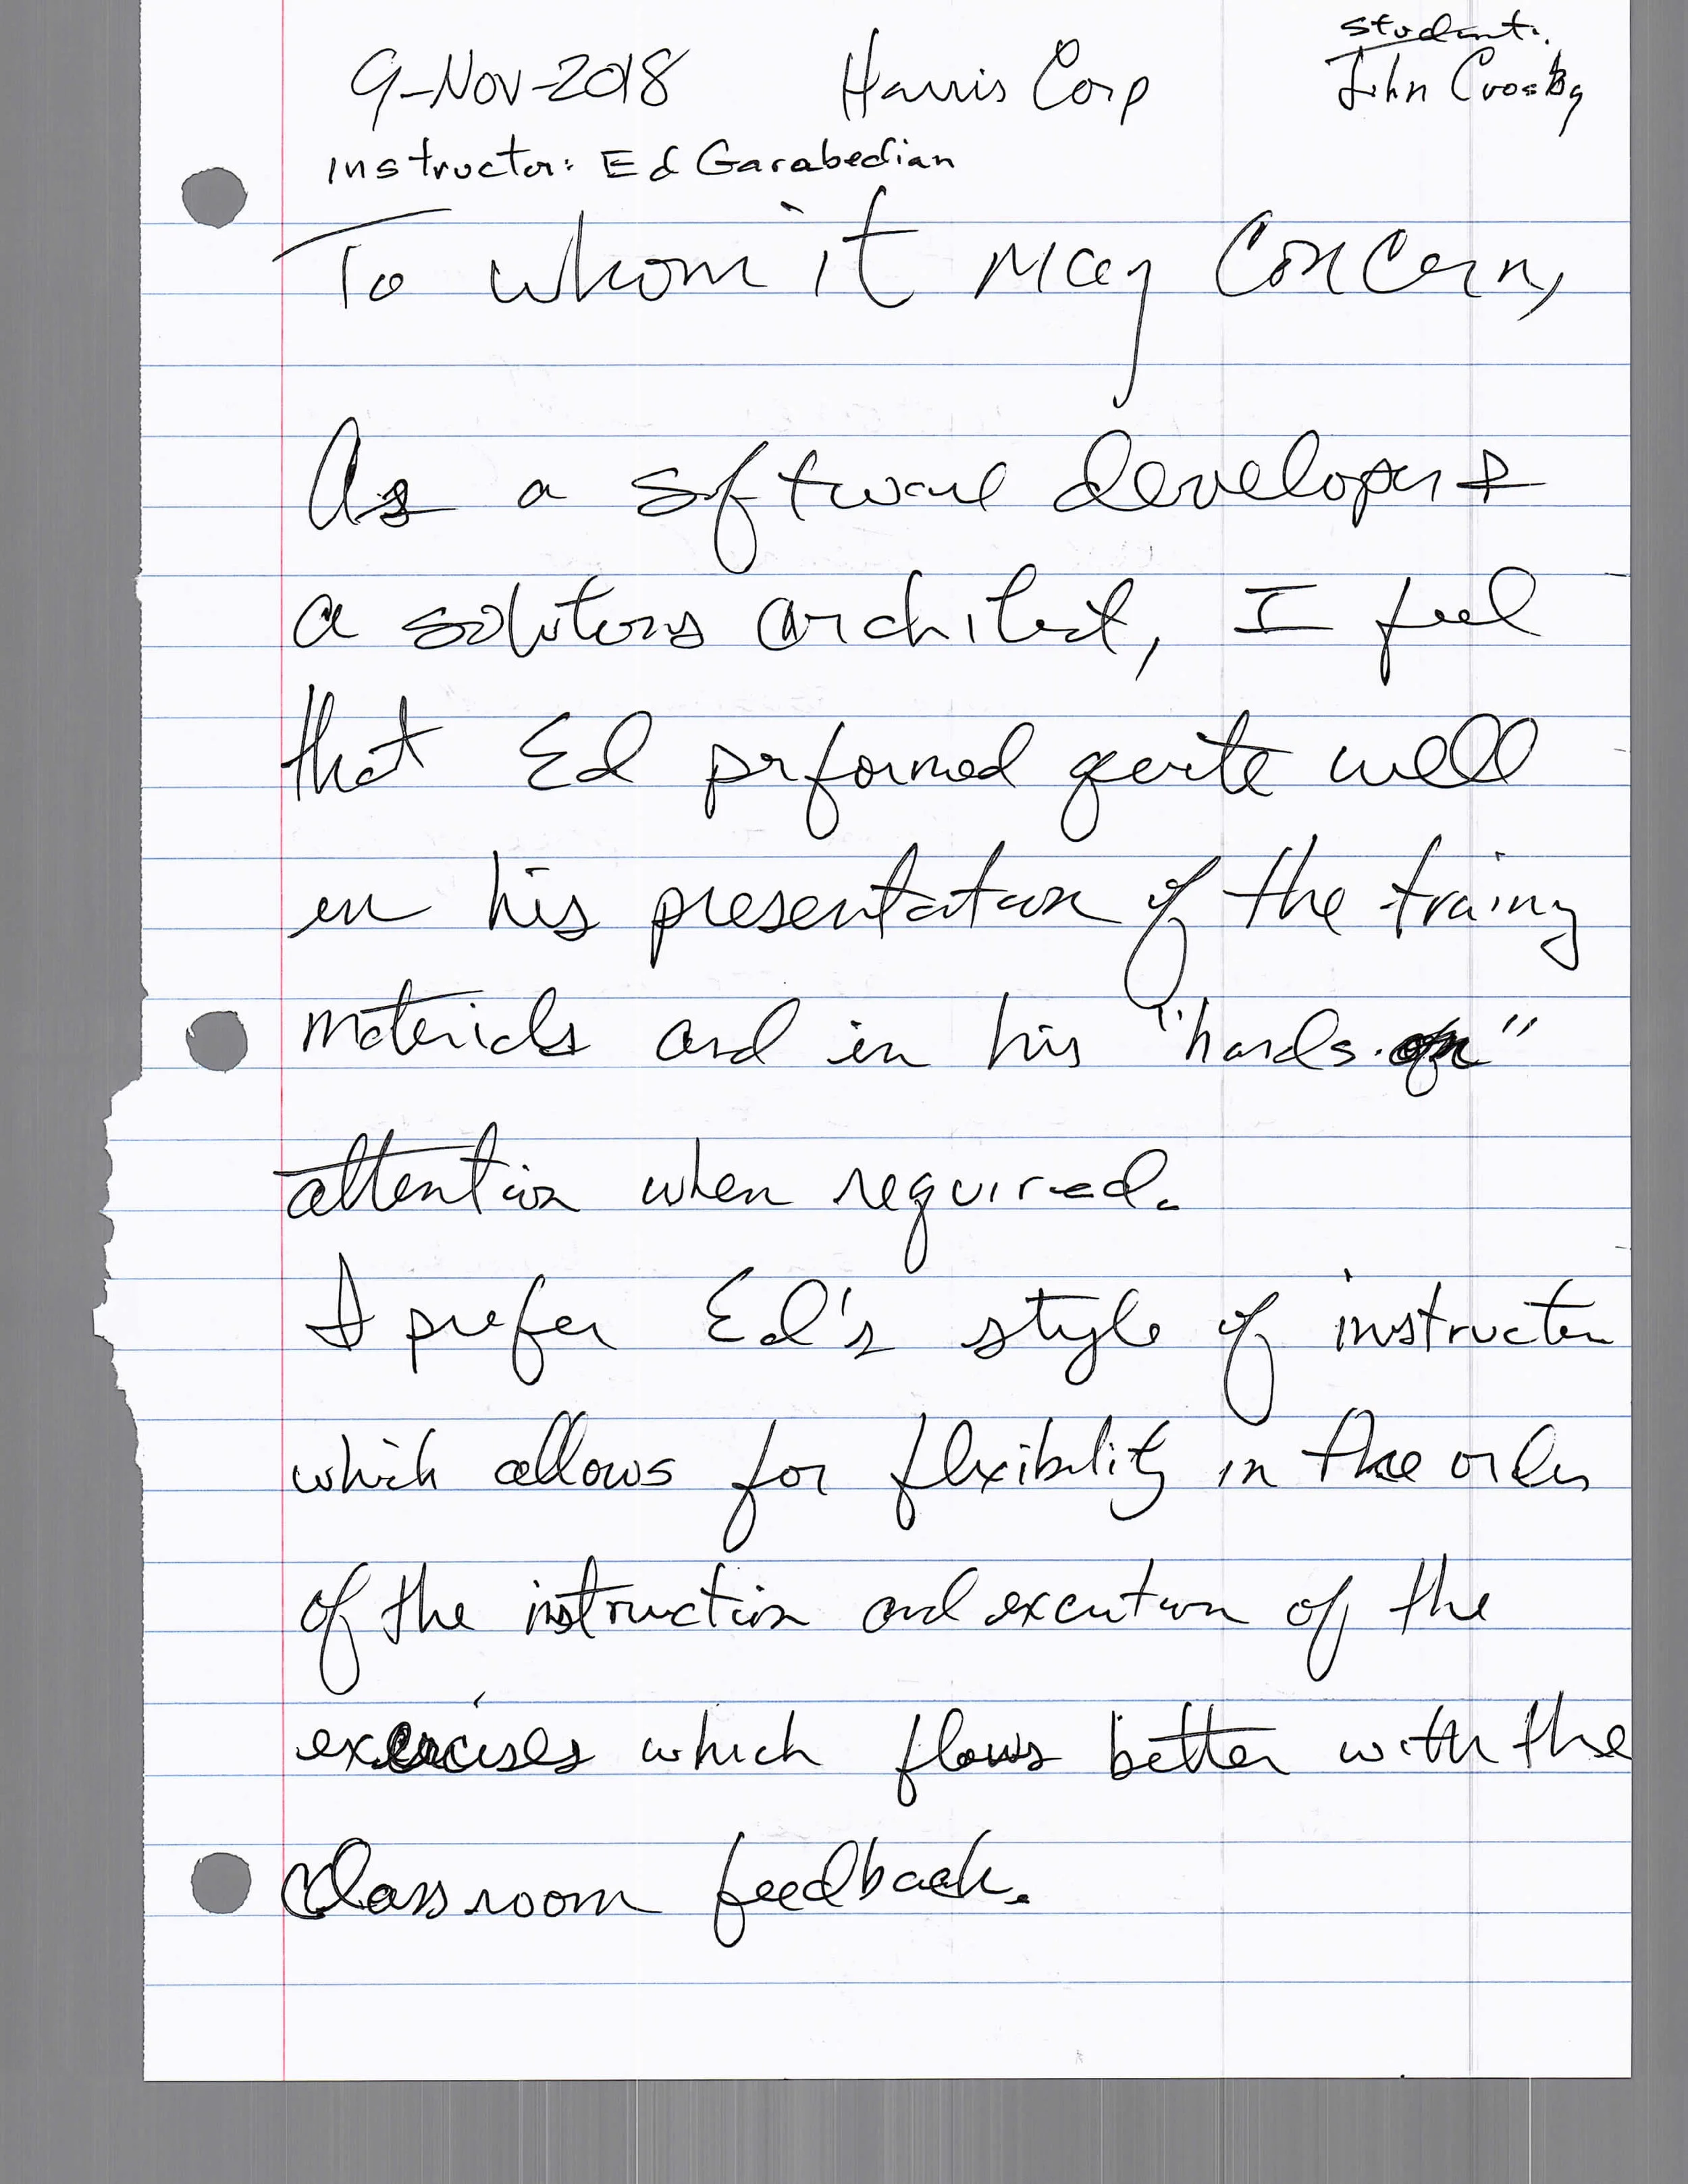 student:
9-Nov-2018 Harris Corp John Crosby
Instructor: Ed Garabedian
To whom it may concern,
As a software developer &
a solutions architect, I feel
that Ed prformed quite well
in his presentation of the training
materials and in his "hands-on"
attention when required.
I prefer Ed's style of instruction
which allows for flexibility in the order
of the instruction and execution of the
exercises which flows better with the
classroom feedback.